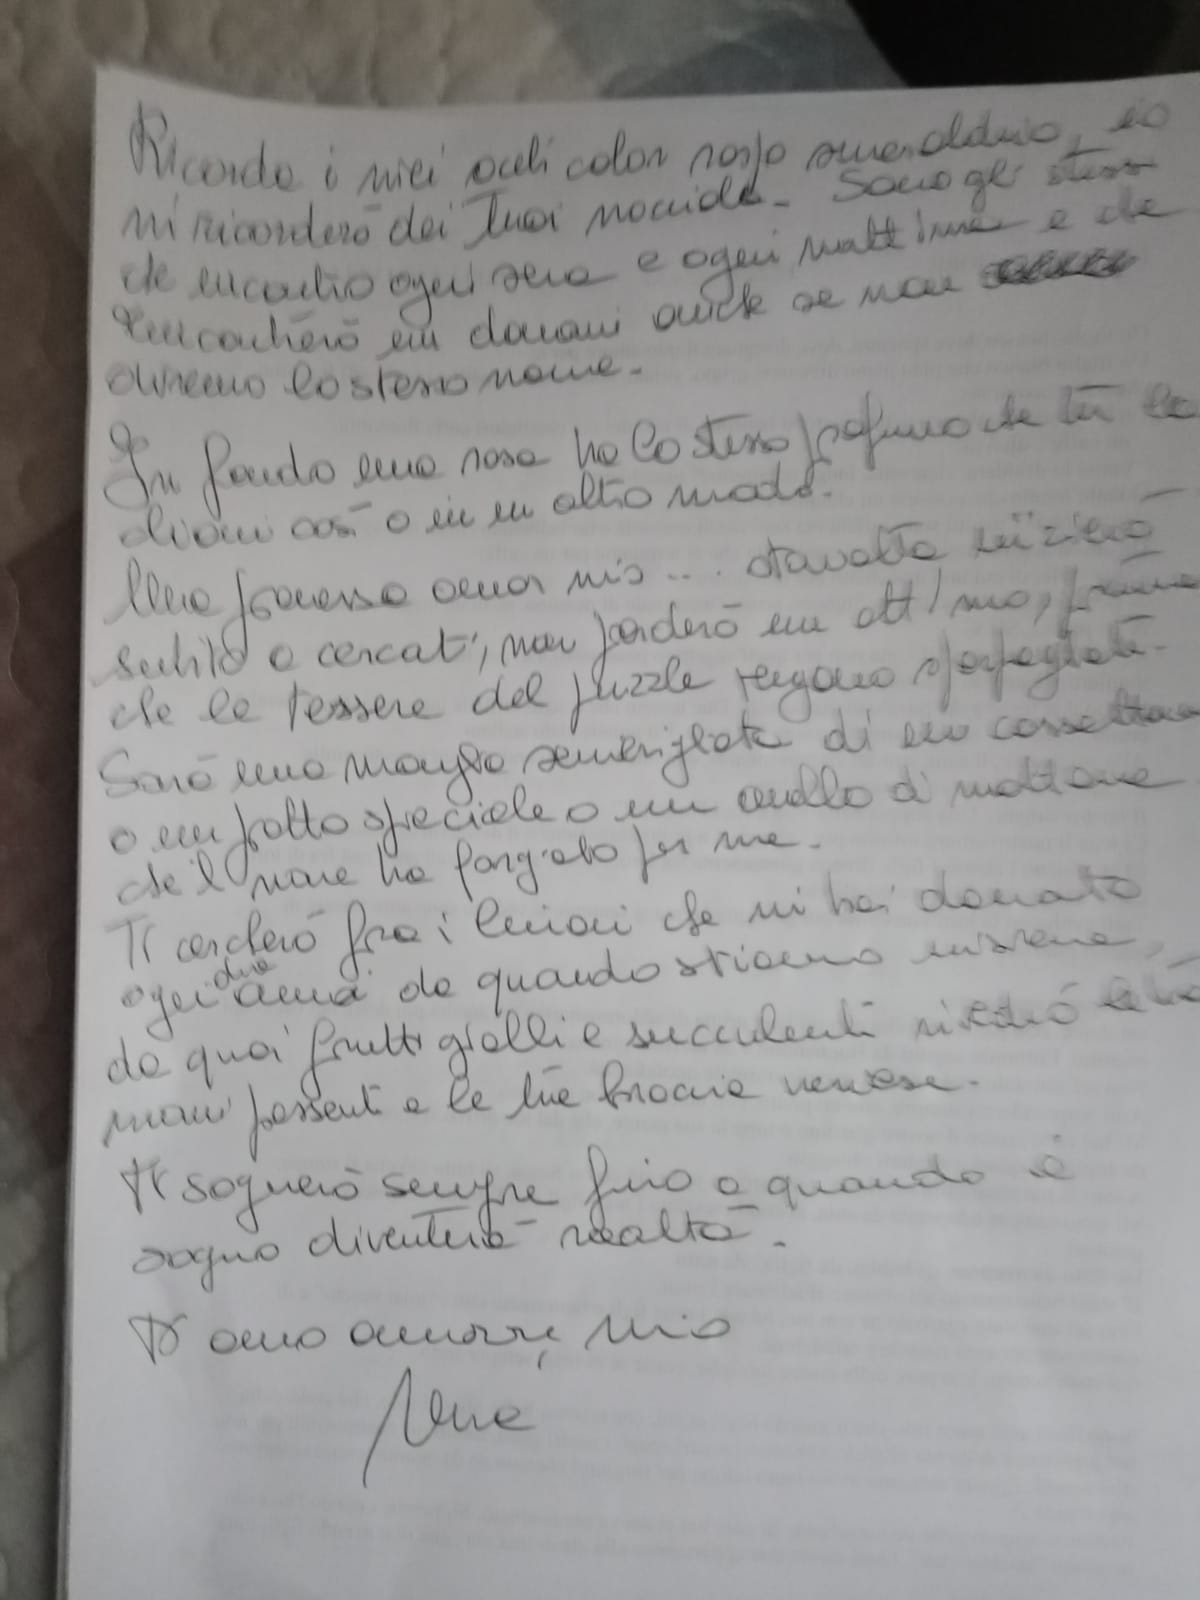 Ricorda i miei occhi color rosso smeraldino, io
mi ricorderò dei tuoi nocciola. Sono gli stessi
che incontro ogni sera e ogni mattina e che
rincontrerò un domani anche se non
avremo lo stesso nome.
In fondo una rosa ha lo stesso profumo che tu la
chiami così o in un altro modo.
Una promessa amor mio... stavolta inizierò
subito a cercarti, non perderò un attimo, prima
che le tessere del puzzle vengano sparpagliate.
Sarò una maniglia smerigliata di un cassettone
o un gatto speciale o un anello di mattone
che il mare ha forgiato per me.
Ti cercherò fra i limoni che mi hai donato
ogni dì da quando stiamo insieme,
da quei frutti gialli e succulenti rivedrò le tue
mani possenti e le tue braccia
Ti sognerò sempre fino a quando il
sogno diventerà realtà.
Ti amo amore mio